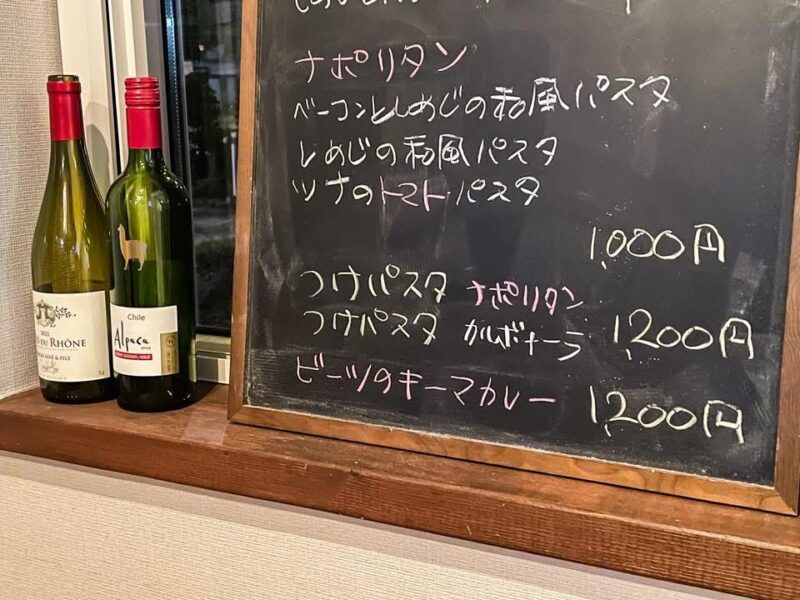 ナポリタン
ベーコンとしめじの和風パスタ
しめじの和風パスタ
ツナのトマトパスタ
1,000円
つけパスタ ナポリタン
つけパスタ カルボナーラ 1,200円
ビーツのキーマカレー 1,200円
2022
DU RHÔNE
& FILS
Chile
Alpaca